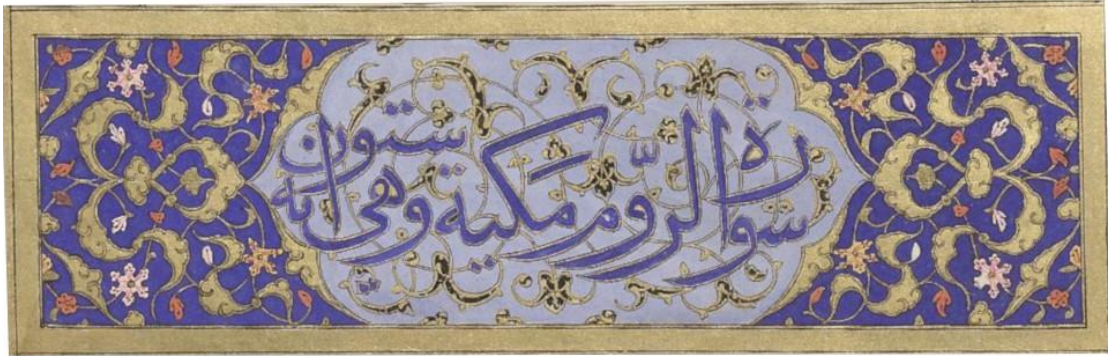 سورة الروم مكية وهى ستون اية